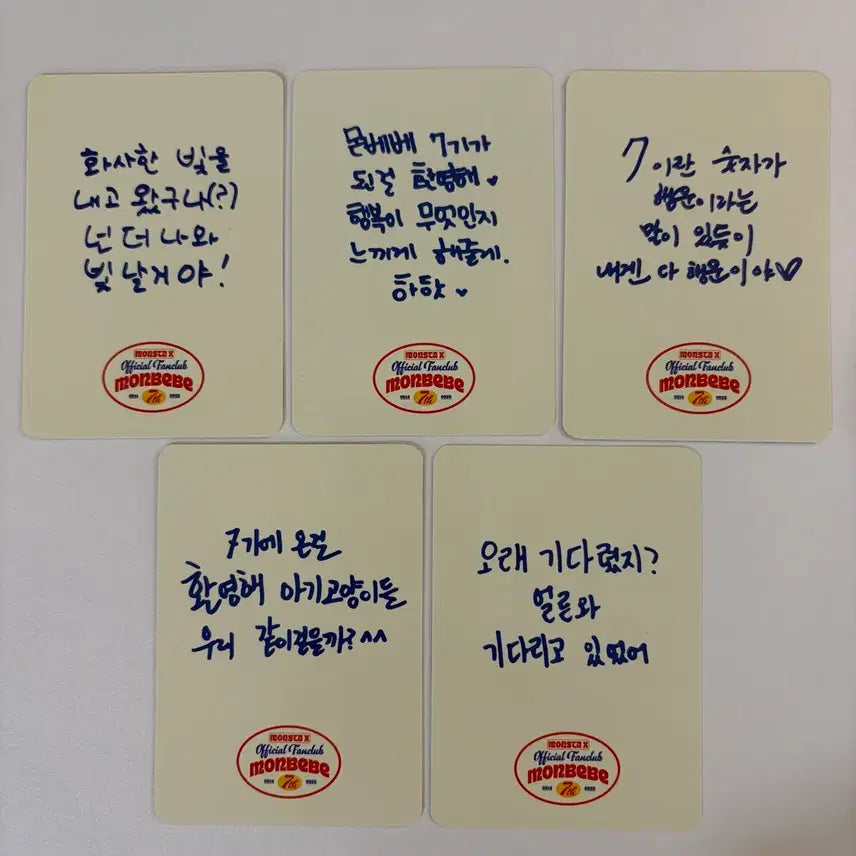 화사한 빛을
내고 왔구나(?)
넌 더 나와
빛날거야!
MONSTA X
Official Fanclub
MONBEBE
0514 7th 0522
몬베베 7기가
된걸 환영해♥
행복이 무엇인지
느끼게 해줄게.
하핫♥
MONSTA X
Official Fanclub
MONBEBE
7th
7이란 숫자가
행운이라는
말이 있듯이
내겐 다 행운이야♡
MONSTA X
Official Fanclub
MONBEBE
7th
7기에 온걸
환영해 아기고양이들
우리 같이걸을까?^^
MONSTA X
Official Fanclub
MONBEBE
7th
오래 기다렸지?
얼른와
기다리고 있었어
MONSTA X
Official Fanclub
MONBEBE
7th